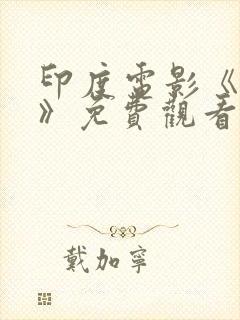 印度電影《
》免費觀看
戴加寧